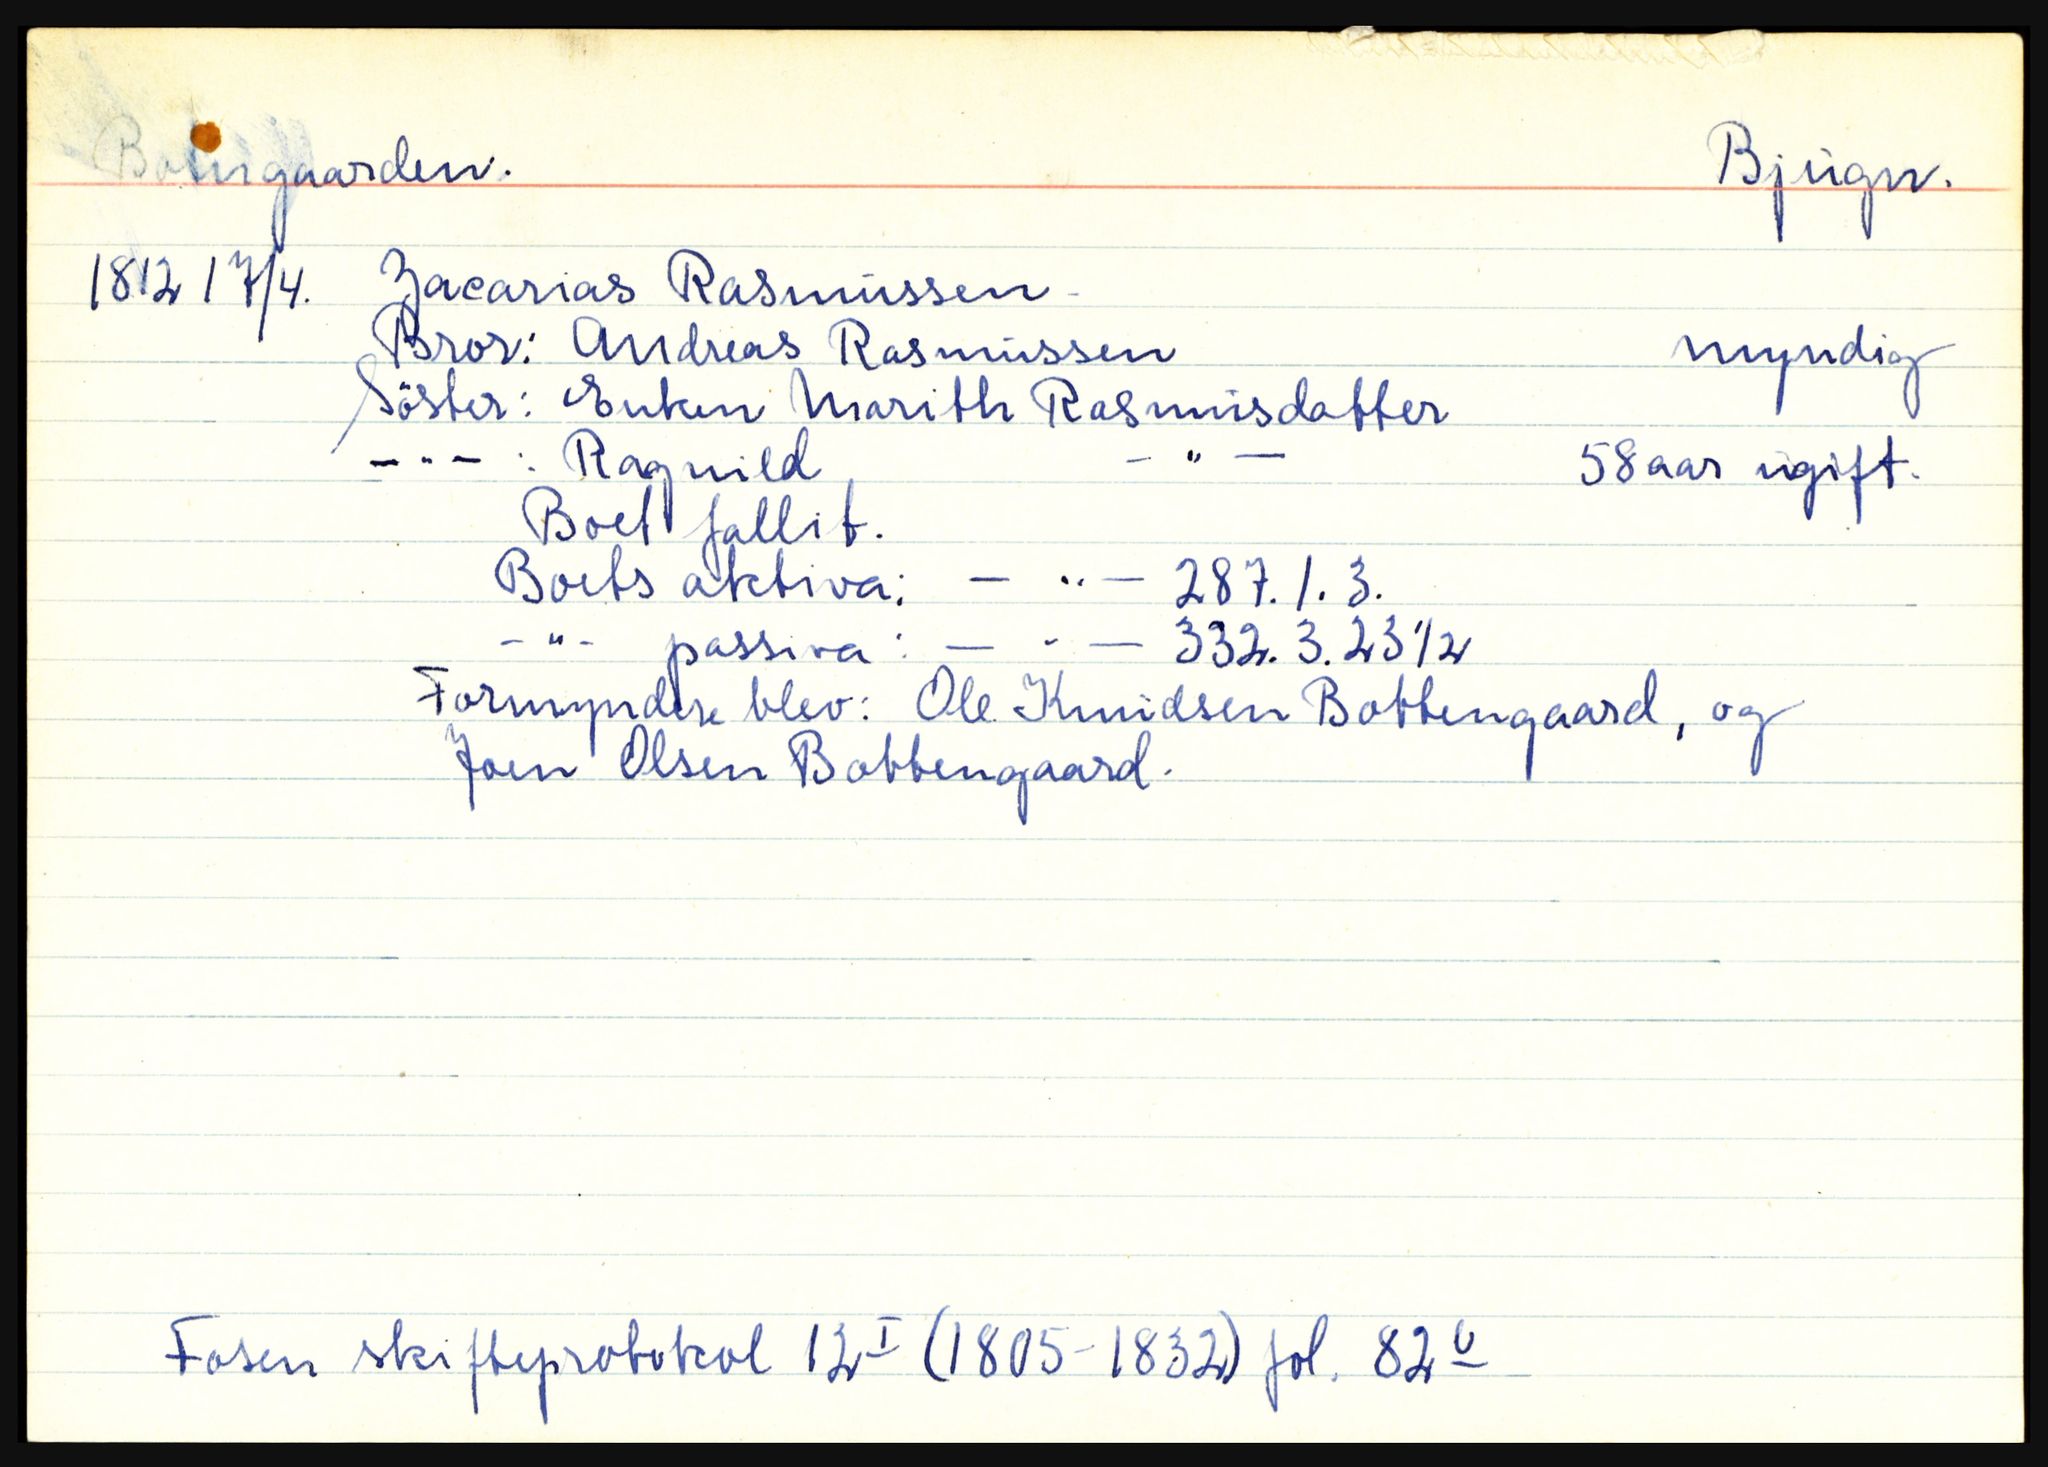 Botngaarden. Bjugn.
1812 17/4. Zacarias Rasmussen
Bror: Andreas Rasmussen myndig
Söster: Enken Marith Rasmusdatter
– " – : Ragnild – " – 58 aar ugift.
Boet fallit.
Boets aktiva: – " – 287. 1. 3.
– " – passiva: – " – 332. 3. 23 1/2
Formyndere blev: Ole Knudsen Bottengaard, og
Joen Olsen Bottengaard.
Fosen skifteprotokol 12 I (1805-1832) fol. 82 b